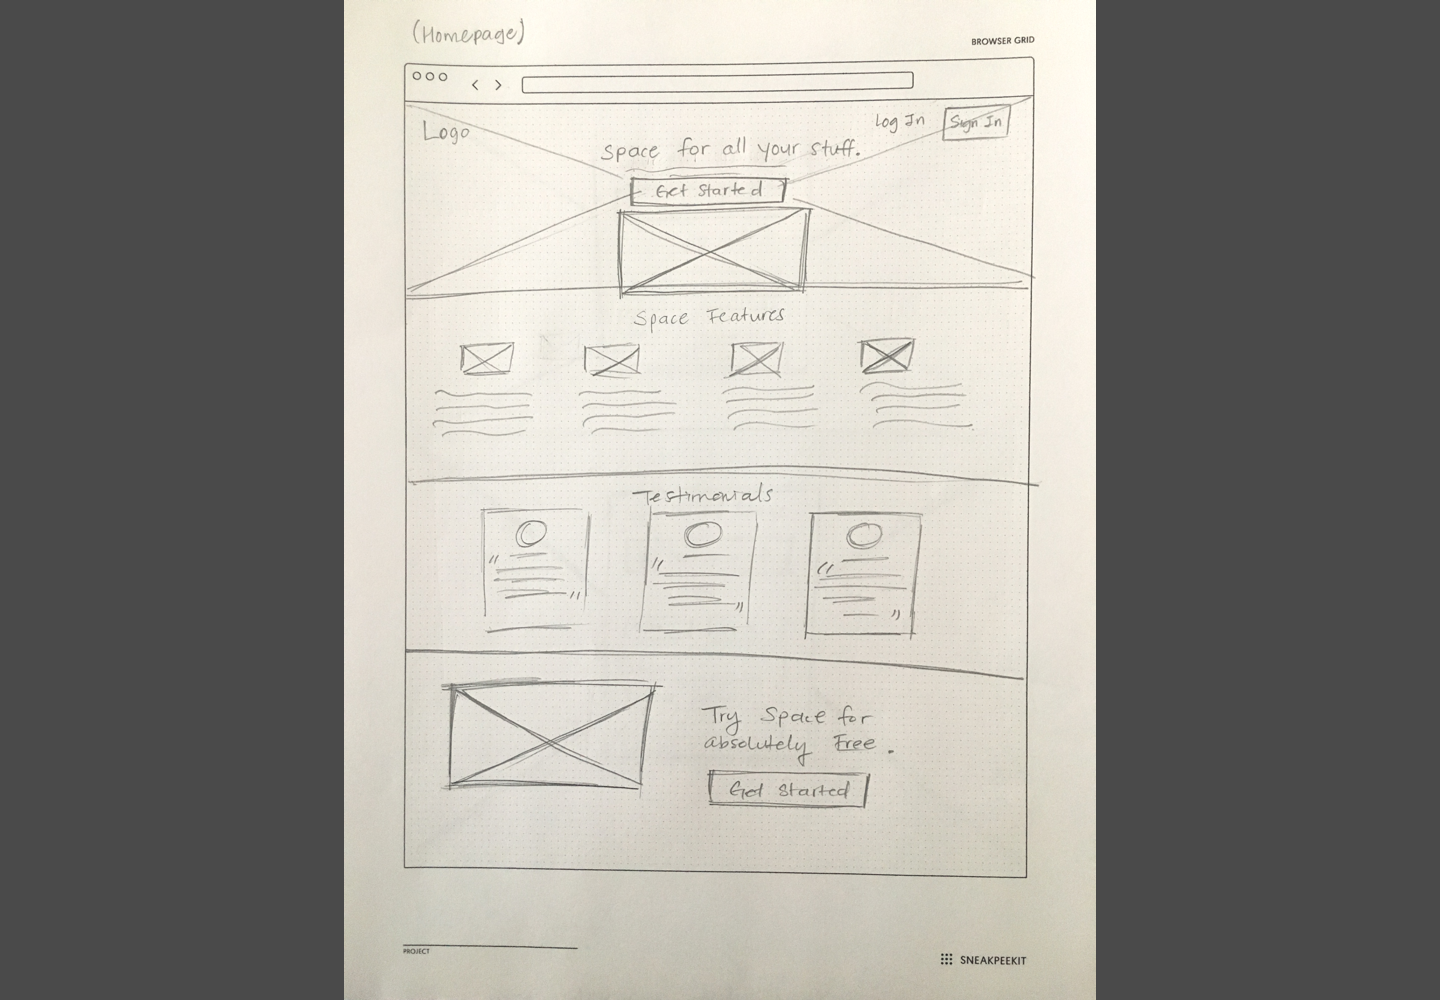 (Homepage)
BROWSER GRID
Logo
Log In
Sign In
Space for all your stuff.
Get Started
Space Features
Testimonials
Try Space for
absolutely Free.
Get Started
PROJECT
SNEAKPEEKIT